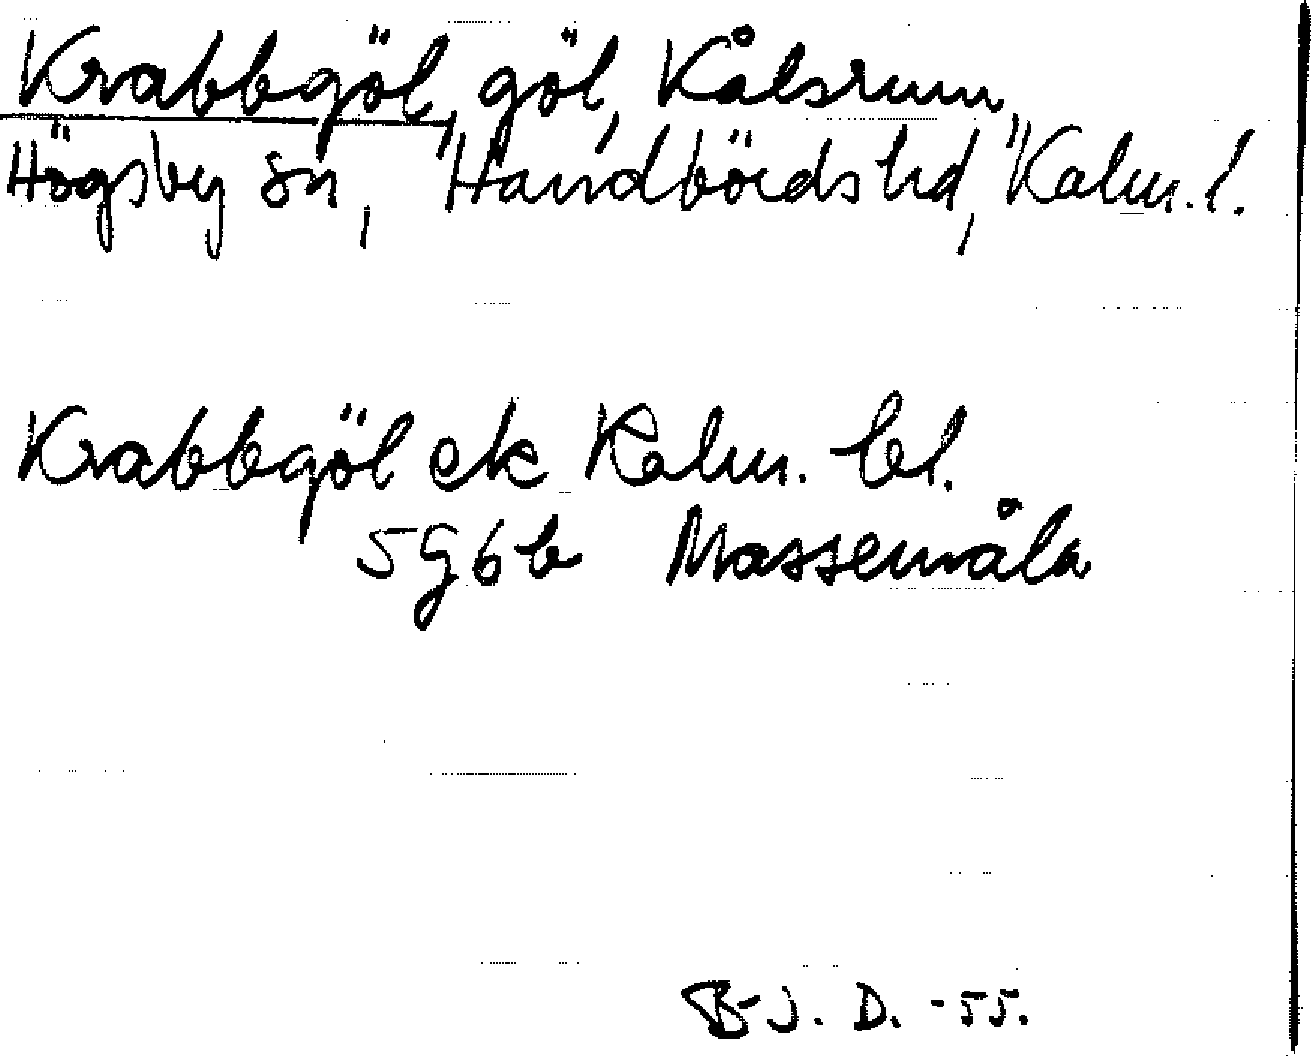 Krabbgöl, göl, Kålsrum,
Högsby sn, Handbörds hd, Kalm. l.
Krabbgöl ek Kalm. bl.
5G6b Massemåla
B-J. D. -55.